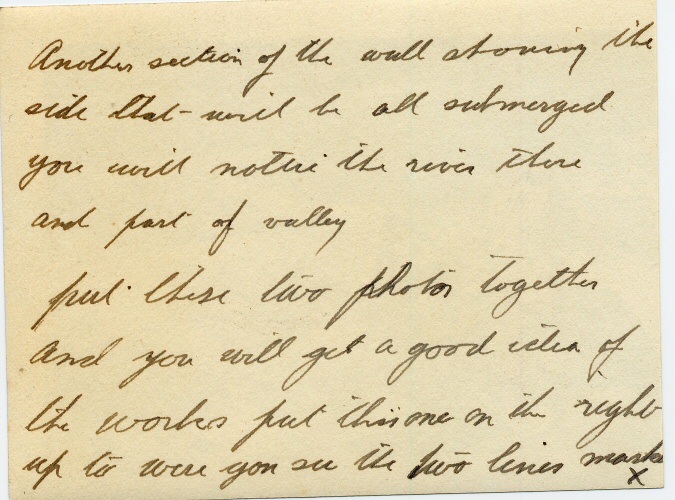 Another section of the wall showing the
side that will be all submerged
you will notice the river there
and part of valley
put these two photos together
and you will get a good idea of
the works put this one on the right
up to were you see the two lines marked
X